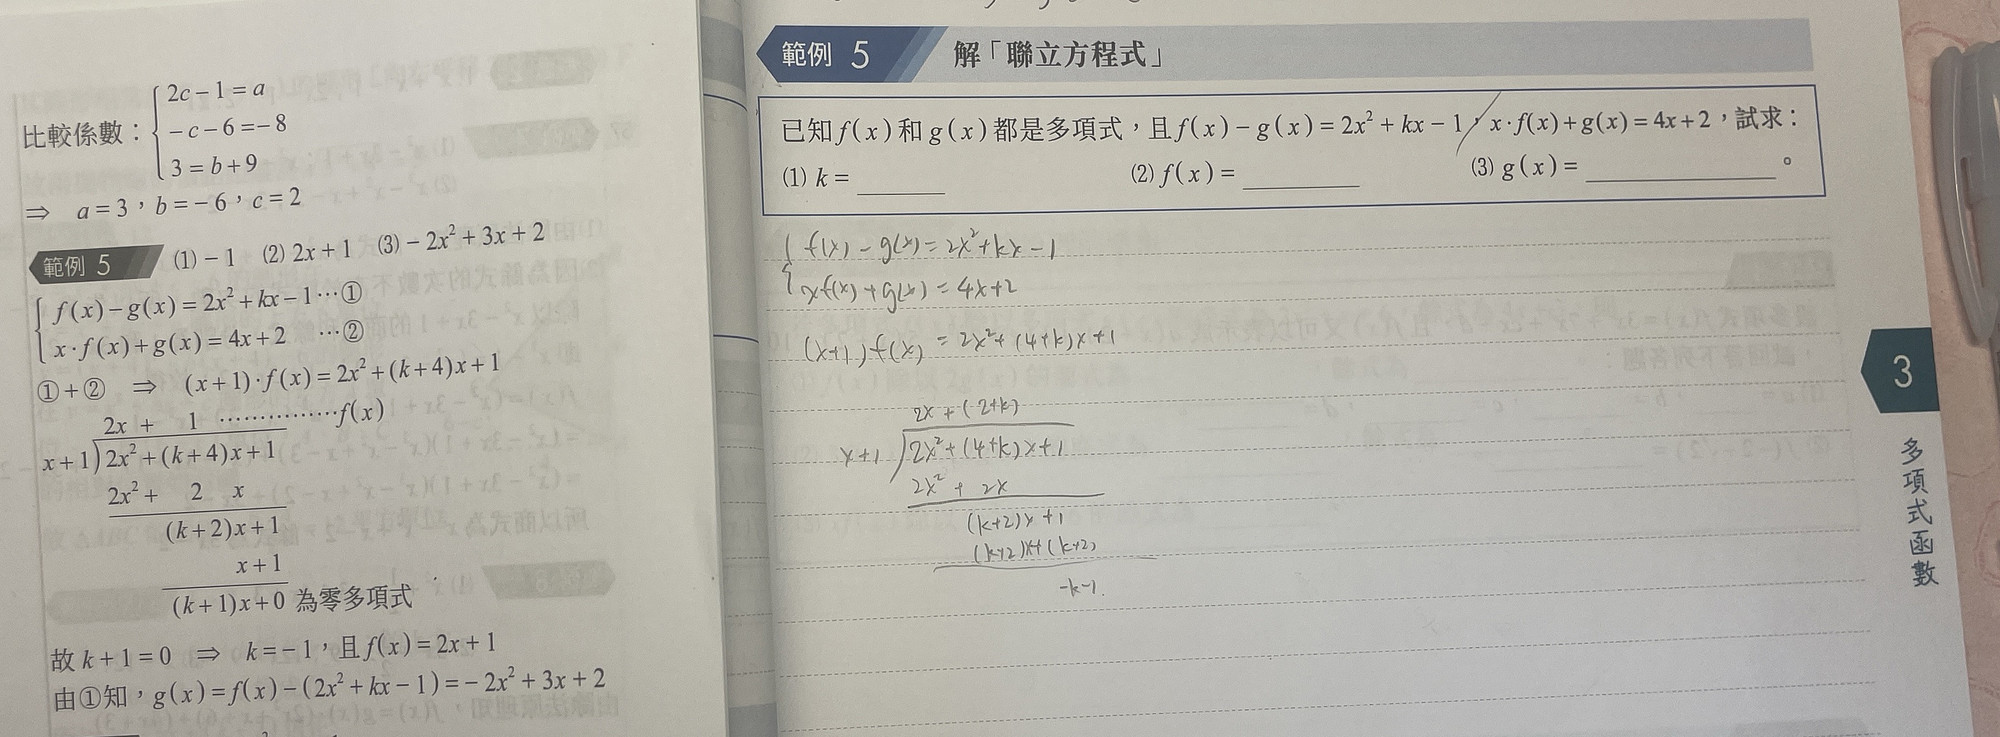 比較係數：{ 2c − 1 = a
−c − 6 = −8
3 = b + 9
⇒ a = 3，b = −6，c = 2
範例 5 (1) − 1 (2) 2x + 1 (3) − 2x² + 3x + 2
{ f(x) − g(x) = 2x² + kx − 1 ⋯①
x · f(x) + g(x) = 4x + 2 ⋯②
① + ② ⇒ (x + 1) · f(x) = 2x² + (k + 4)x + 1
2x + 1 ……………f(x)
x + 1 ) 2x² + (k + 4)x + 1
2x² + 2 x
(k + 2)x + 1
x + 1
(k + 1)x + 0 為零多項式
故 k + 1 = 0 ⇒ k = − 1，且 f(x) = 2x + 1
由①知，g(x) = f(x) − (2x² + kx − 1) = − 2x² + 3x + 2
範例 5 解「聯立方程式」
已知 f(x) 和 g(x) 都是多項式，且 f(x) − g(x) = 2x² + kx − 1，x · f(x) + g(x) = 4x + 2，試求：
(1) k = ______ (2) f(x) = ______ (3) g(x) = ______ 。
{ f(x) − g(x) = 2x² + kx − 1
xf(x) + g(x) = 4x + 2
(x+1) f(x) = 2x² + (4+k)x + 1
2x + (2+k)
x+1 ) 2x² + (4+k)x + 1
2x² + 2x
(k+2)x + 1
(k+2)x + (k+2)
−k−1.
3
多項式函數